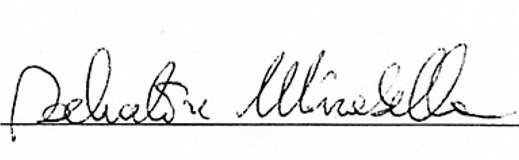 Salvatore Mirabella